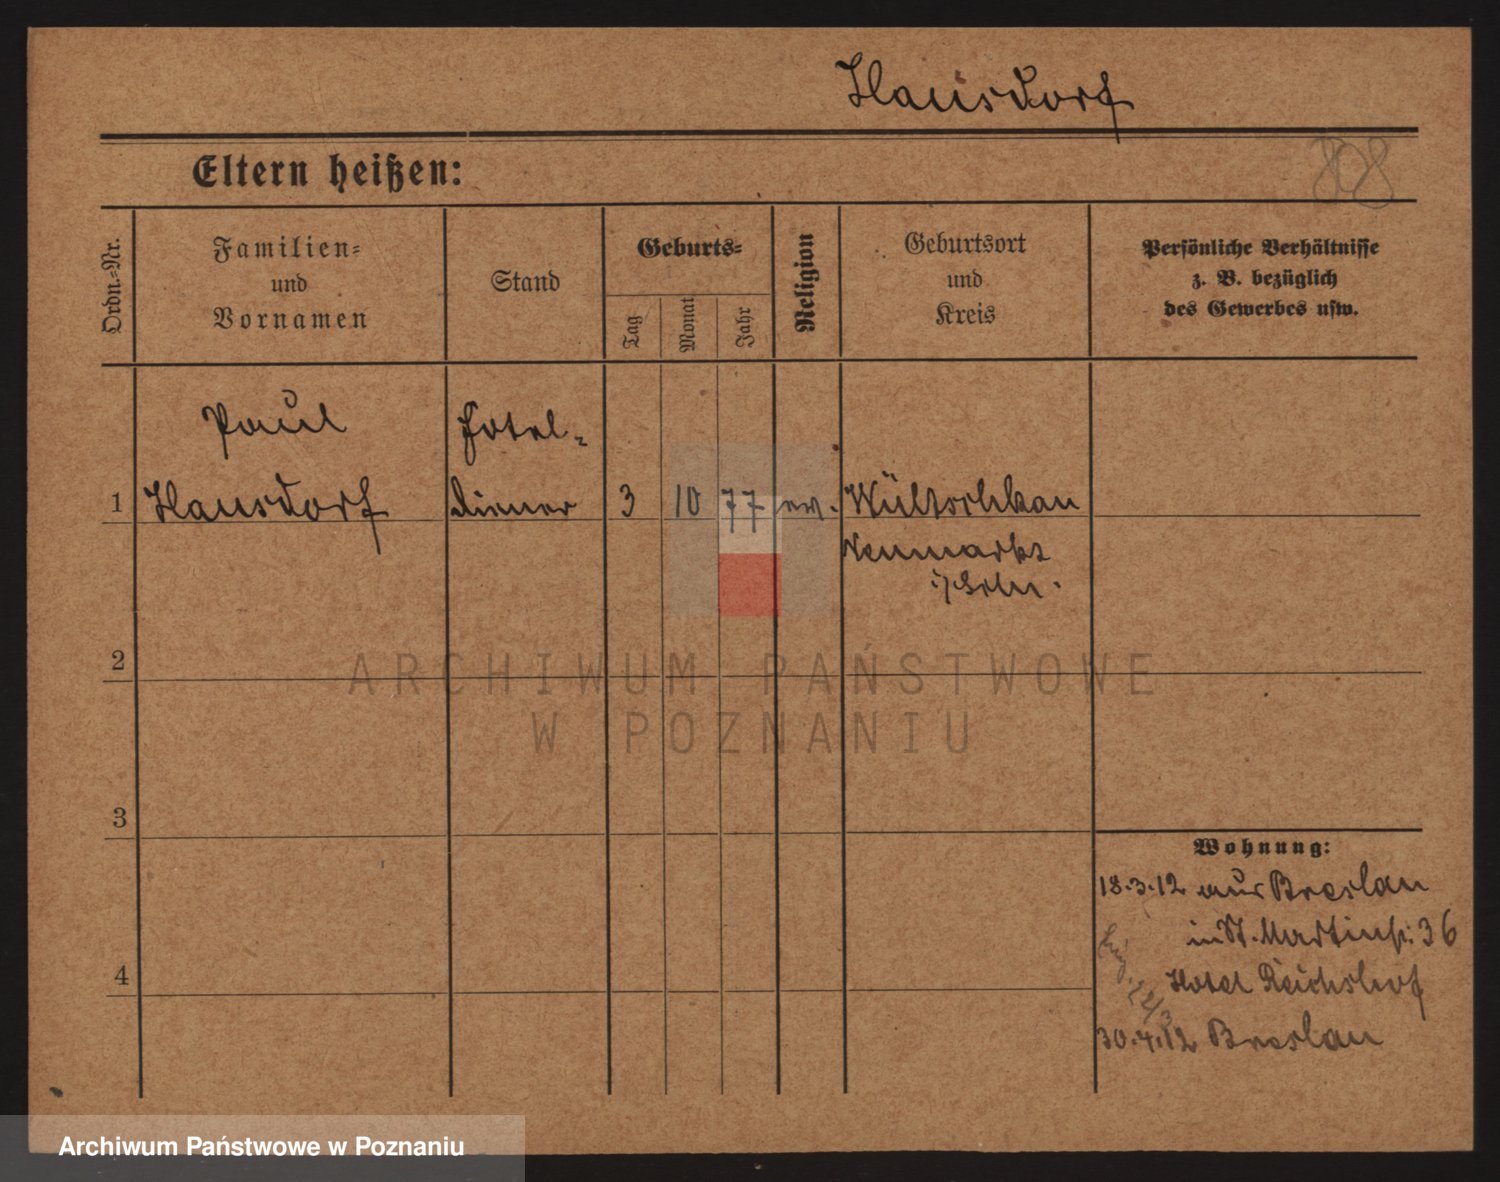 Hausdorf
808
Eltern heißen:
Ordn.=Nr.
Familien=
und
Vornamen
Stand
Geburts=
Tag
Monat
Jahr
Religion
Geburtsort
und
Kreis
Persönliche Verhältnisse
z. B. bezüglich
des Gewerbes usw.
Paul
Hausdorf
Hotel-
diener
1
3
10
77
ev.
Wültschkau
Neumarkt
i/Schl.
2
ARCHIWUM PAŃSTWOWE
W POZNANIU
3
4
Wohnung:
18.3.12 aus Breslau
in St. Martinstr. 36
Hotel Reichshof
22/3
30.4.12 Breslau
Archiwum Państwowe w Poznaniu